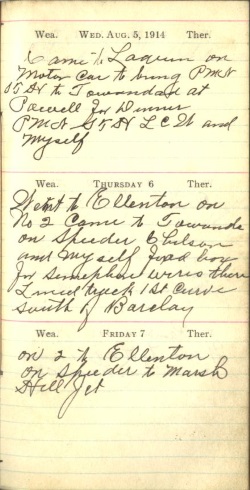 Wea. WED. AUG. 5, 1914 Ther.
Came to Laquin on
Motor Car to bring PMN
to Towandan at
Powell for Dinner
PMN LCW and
Myself
Wea. THURSDAY 6 Ther.
Went to Ellenton on
No 2 Came to Towanda
on Speeder
and Myself fixed box
for Semaphore wires there
Lined track 1st Curve
South of Barclay
Wea. FRIDAY 7 Ther.
on 2 to Ellenton
on Speeder to Marsh
Hill Jct